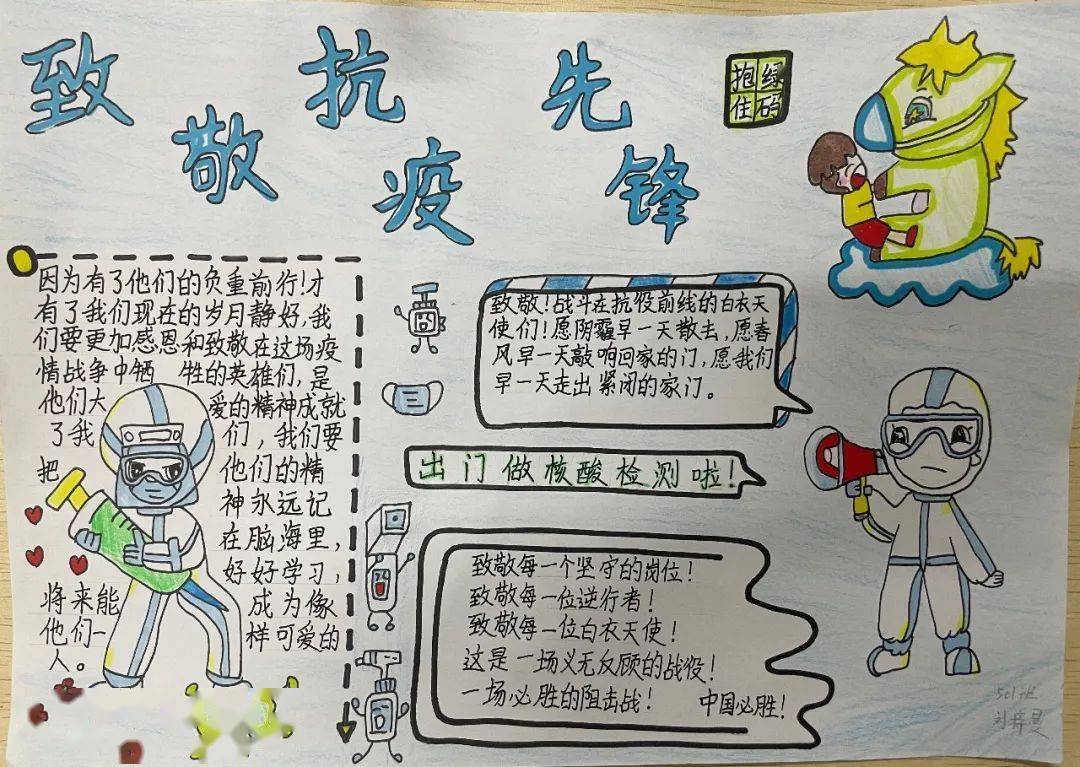 致敬抗疫先锋
抱绿
住码
因为有了他们的负重前行!才
有了我们现在的岁月静好,我
们要更加感恩和致敬在这场疫
情战争中牺 牲的英雄们,是
他们大 爱的精神成就
了我 们,我们要
把 他们的精
神永远记
在脑海里,
好好学习,
将来能 成为像
他们一 样可爱的
人。
致敬!战斗在抗役前线的白衣天
使们!愿阴霾早一天散去,愿春
风早一天敲响回家的门,愿我们
早一天走出紧闭的家门。
出门做核酸检测啦!
致敬每一个坚守的岗位!
致敬每一位逆行者!
致敬每一位白衣天使!
这是一场义无反顾的战役!
一场必胜的阻击战! 中国必胜!
501班